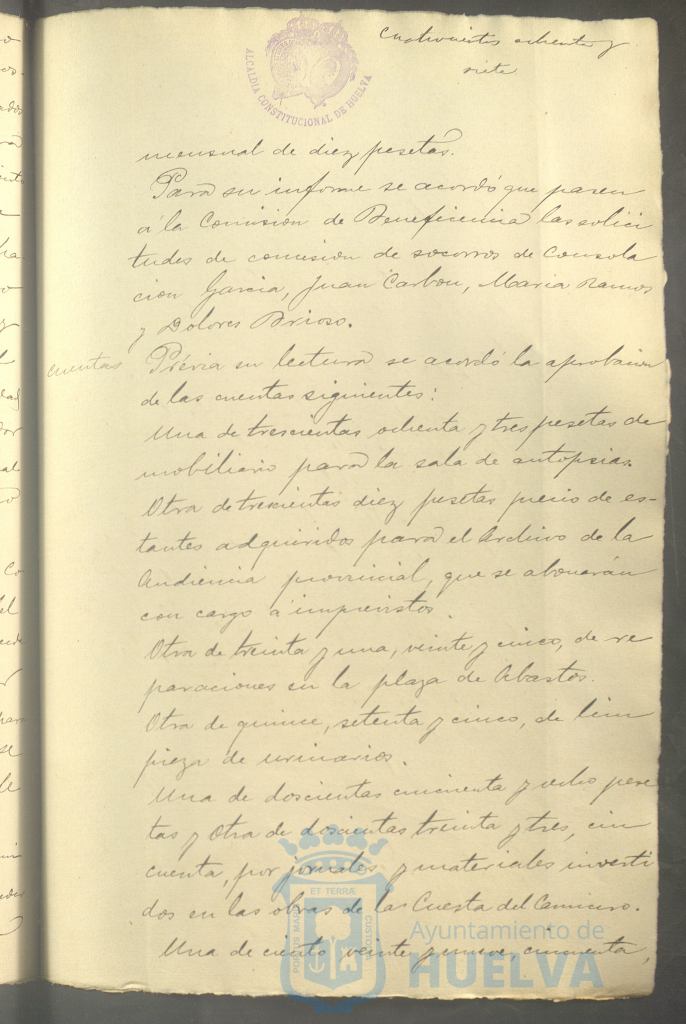 cuatrocientos ochenta y
siete
ALCALDIA CONSTITUCIONAL DE HUELVA
mensual de diez pesetas.
Para su informe se acordó que pasen
á la Comision de Beneficencia las solici
tudes de comision de socorros de Consola
cion Garcia, Juan Carbon, Maria Ramos
y Dolores Brioso.
cuentas
Prévia su lectura se acordó la aprobacion
de las cuentas siguientes:
Una de trescientas ochenta y tres pesetas de
mobiliario para la sala de autopsias.
Otra de trescientas diez pesetas precio de es-
tantes adquiridos para el Archivo de la
Audiencia provincial, que se abonarán
con cargo a imprevistos.
Otra de treinta y una, veinte y cinco, de re
paraciones en la plaza de Abastos.
Otra de quince, setenta y cinco, de lim
pieza de urinarios.
Una de doscientas cincuenta y ocho pese
tas y otra de doscientas treinta y tres, cin
cuenta, por jornales y materiales inverti
dos en las obras de las Cuesta del Carnicero.
Una de ciento veinte y nueve, cincuenta,
PORTUS MARIS ET TERRÆ CUSTODIA
Ayuntamiento de
HUELVA